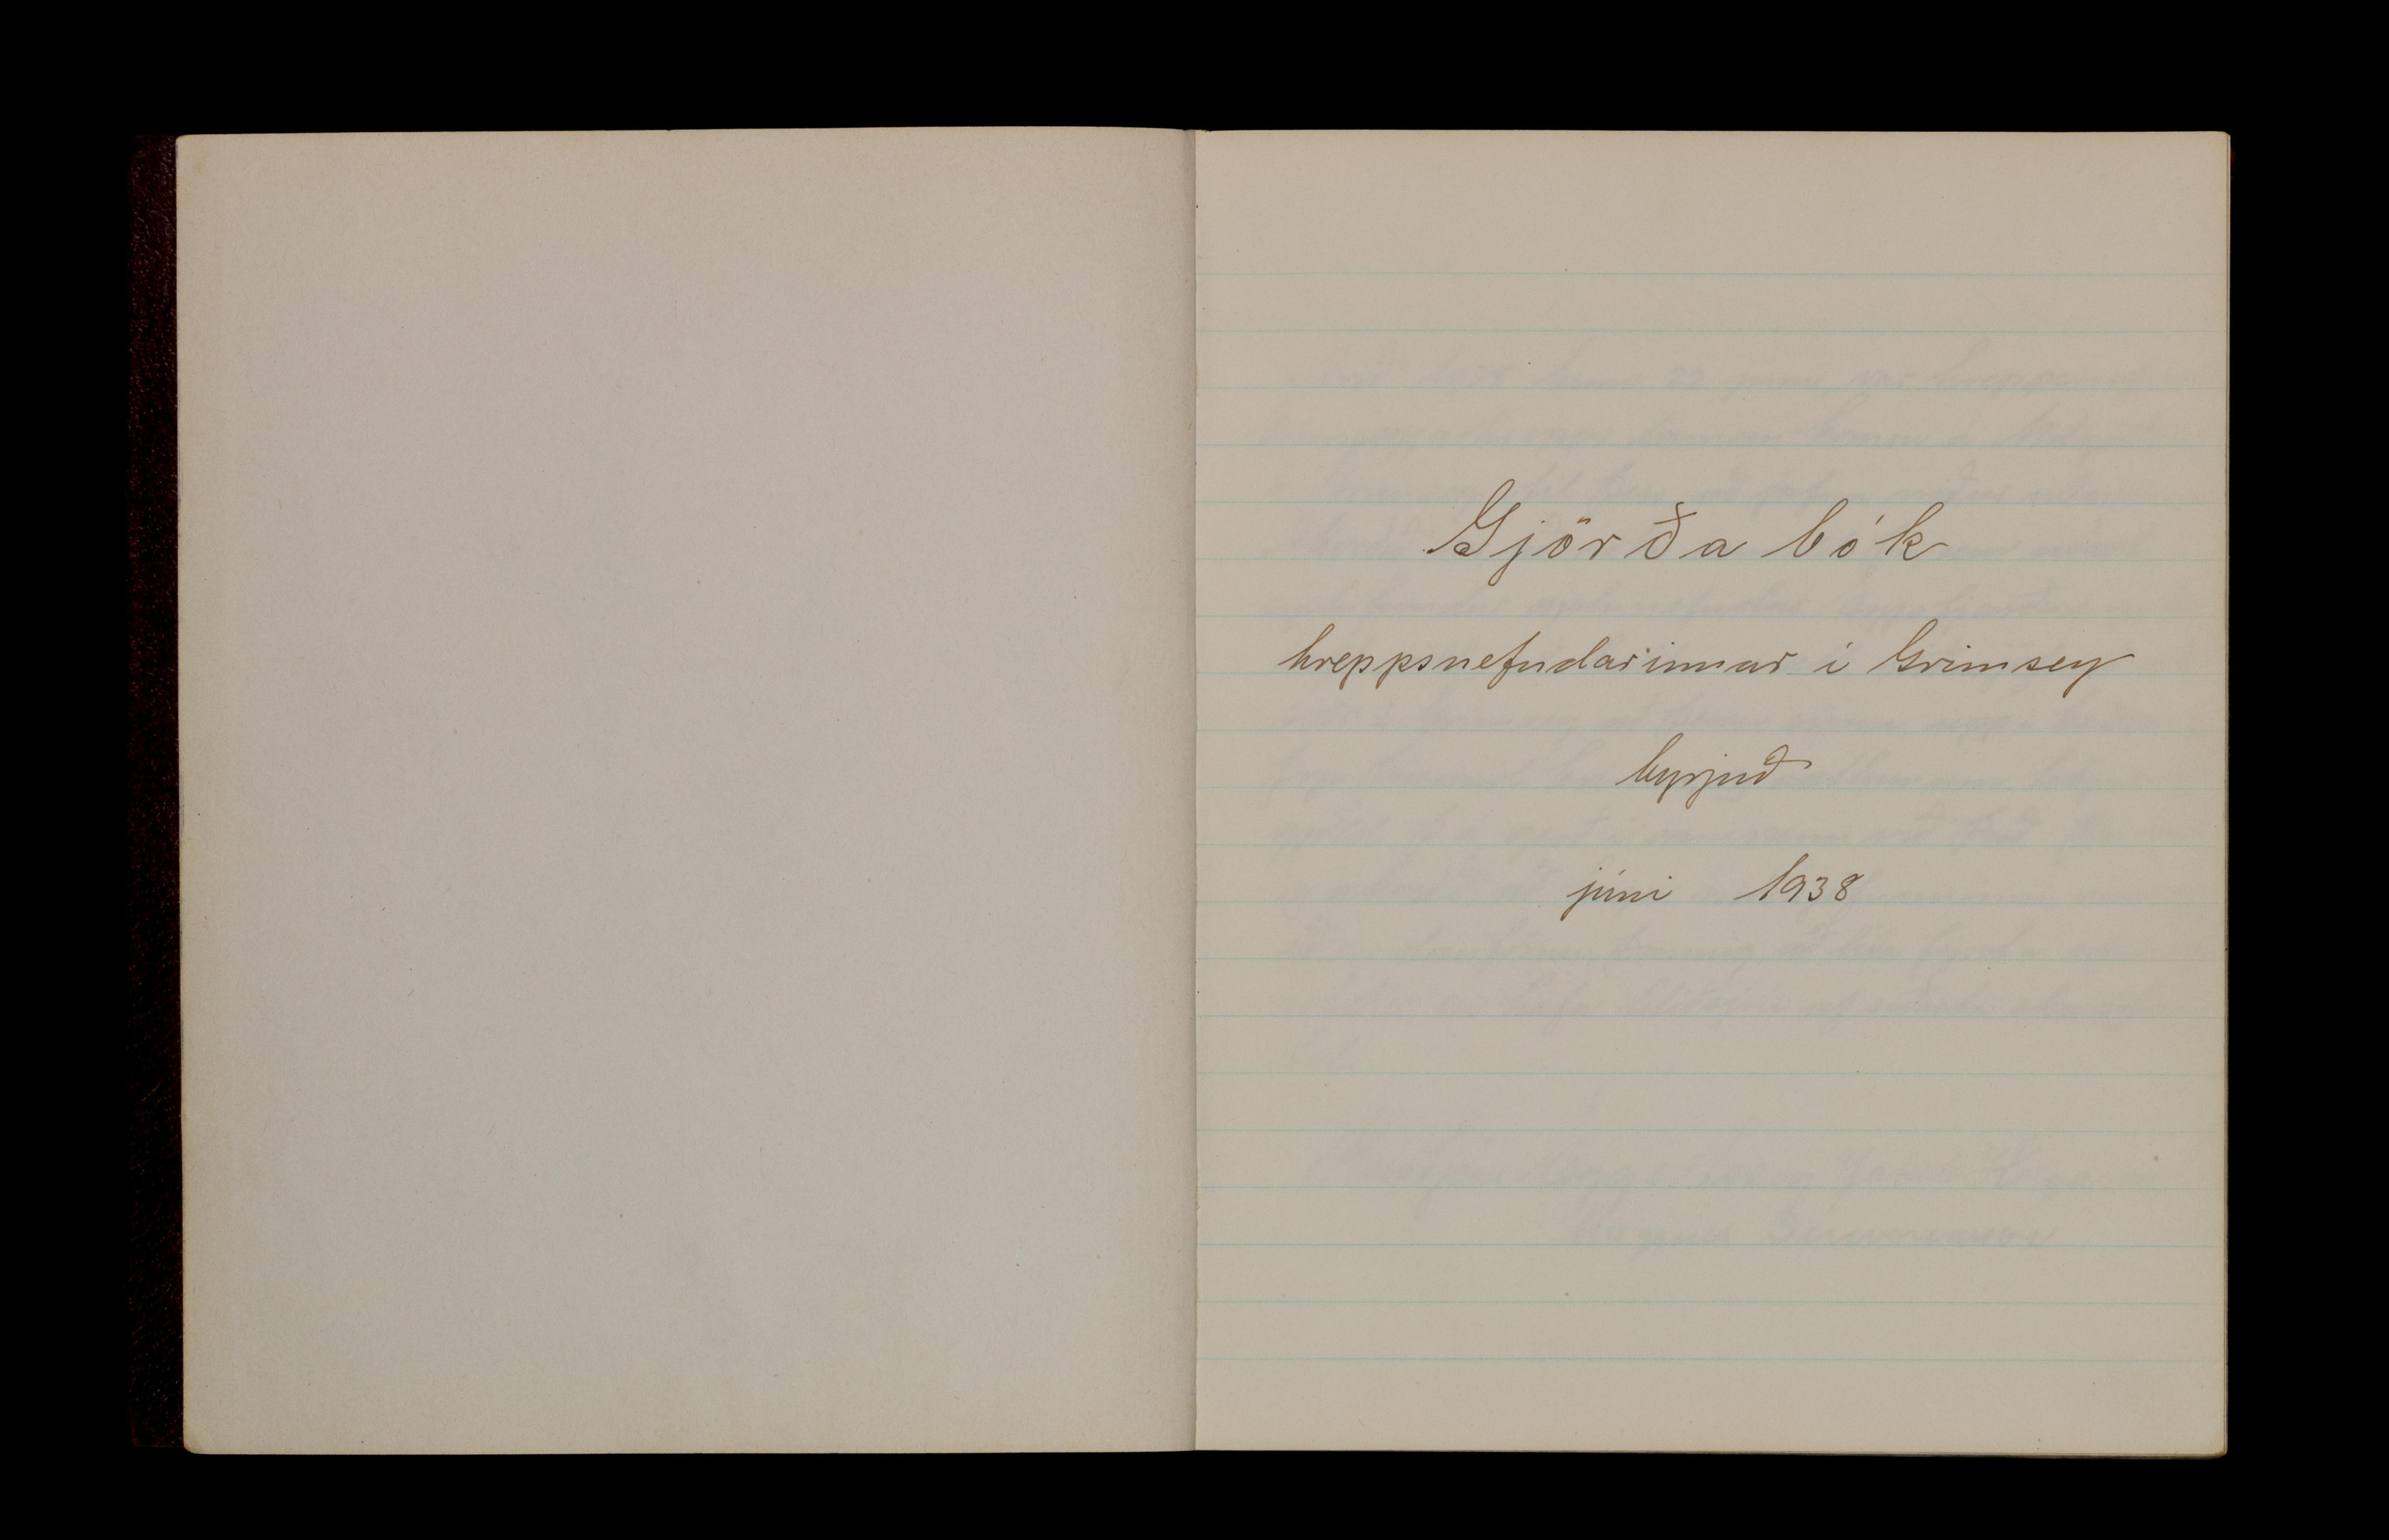 Gjörða bók
hreppsnefndarinnar í Grímsey
byrjuð
júní 1938